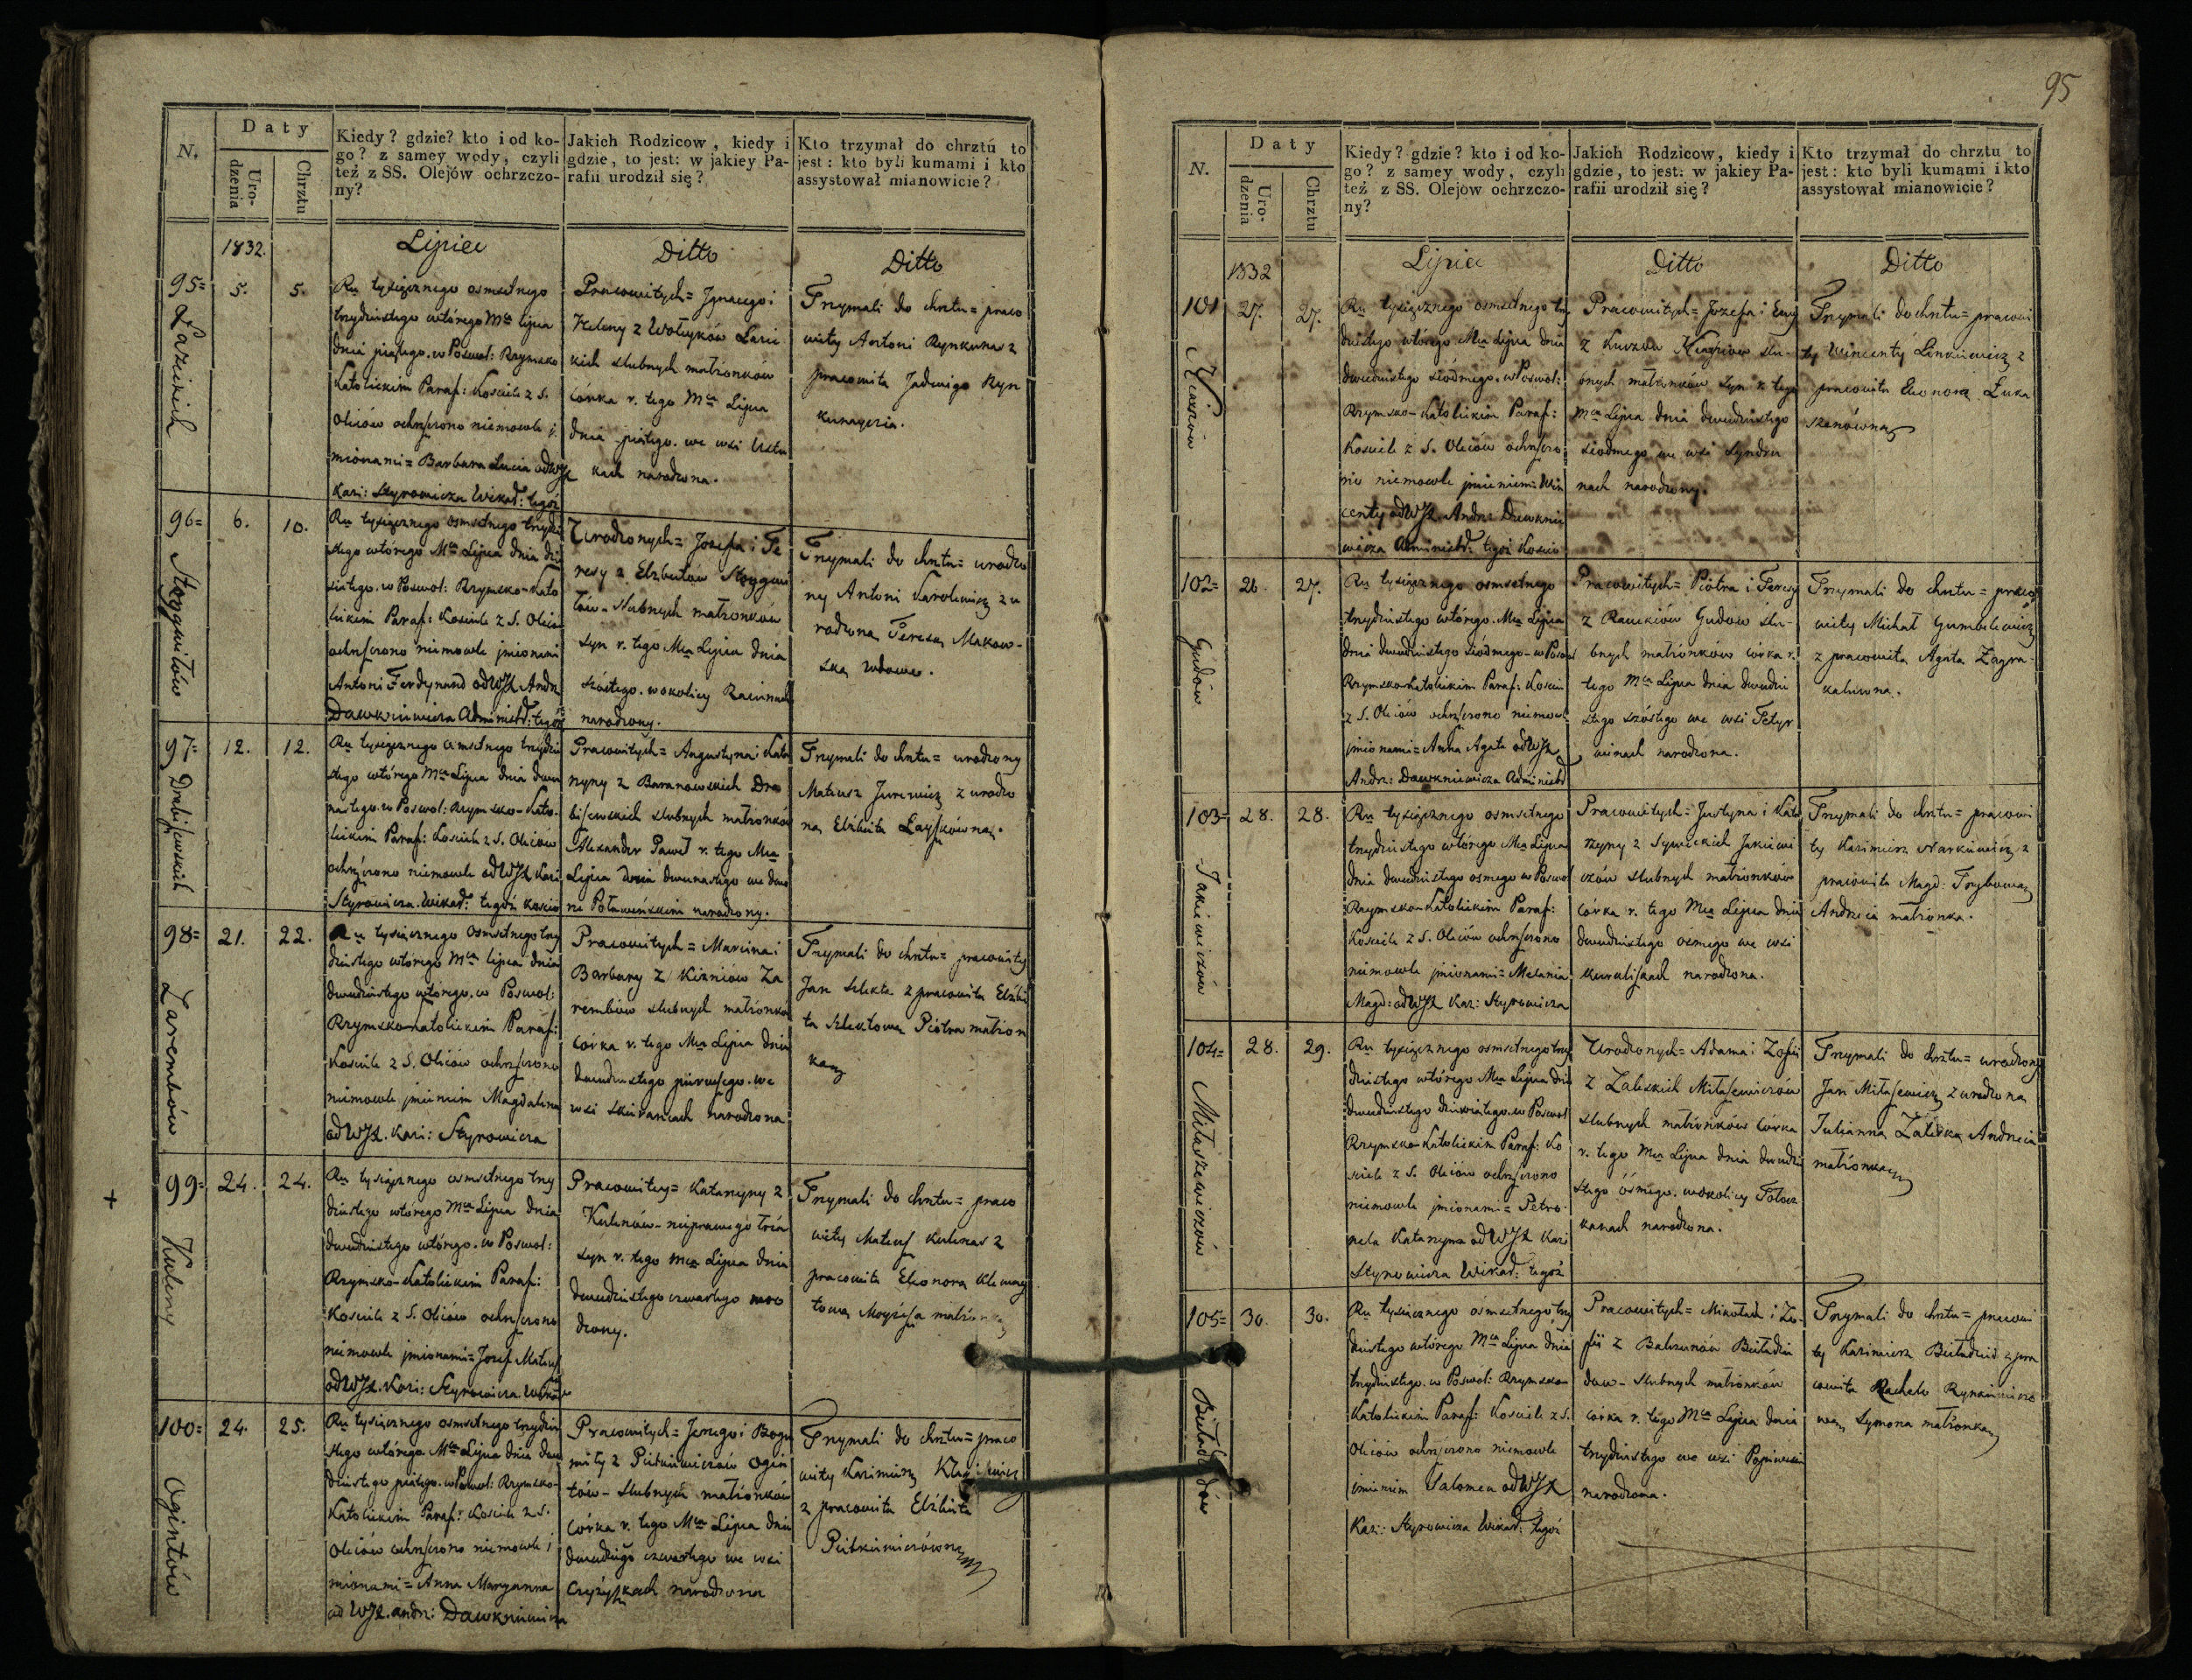 95
N.
Daty
Uro-
dzenia
Chrztu
Kiedy? gdzie? kto i od ko-
go? z samey wody, czyli
też z SS. Olejów ochrzczo-
ny?
Jakich Rodzicow, kiedy i
gdzie, to jest: w jakiey Pa-
rafii urodził się?
Kto trzymał do chrztu to
jest: kto byli kumami i kto
assystował mianowicie?
1832.
Lipiec
Ditto
Ditto
95=
Łazickich
5.
5.
Ru tysiącznego osmsetnego
trzydziestego wtórego Mca lipca
dnia piątego. w Poswol: Rzymsko
Katolickim Paraf: Kosciele z S.
Oleiów ochrzczono niemowle j
mionami= Barbara Łucia od WJX
Kazi: Styrowicza Wikar: tegoż
Pracowitych= Jgnacego i
Heleny z Wołyków Łazic
kich slubnych małżonków
córka r. tego Mca Lipca
dnia piątego. we wsi Usta
kach narodzona.
Trzymali do chrztu= praco
wity Antoni Rynkunas z
pracowita Jadwiga Ryn
kunaycia.
96=
Stoygwiłów
6.
10.
Ru tysiącznego osmsetnego trzydzie
stego wtórego Mca Lipca dnia dzie
siątego. w Poswol: Rzymsko-Kato
lickim Paraf: Kosciele z S. Oleiów
ochrzczono niemowle jmionami
Antoni Ferdynand od WJX Andrz
Dawkniewicza Administ: tegóż
Urodzonych= Jozefa i Te
resy z Elzbutów Stoygwi
łów- slubnych małżonków
syn r. tego Mca Lipca dnia
szóstego. w okolicy Racinach
narodzony.
Trzymali do chrztu= urodzo
ny Antoni Karolewicz z u
rodzoną Teresą Makow-
ską wdową.
97=
Drabiszewskich
12.
12.
Ru tysiącznego osmsetnego trzydzie
stego wtórego Mca Lipca dnia dwu
nastego. w Poswol: Rzymsko-Kato-
lickim Paraf: Kosciele z S. Oleiów
ochrzczono niemowle od WJX Kazi
Styrowicza. Wikar: tegóż koscio
Pracowitych= Augustyna i Kata
rzyny z Baranowskich Dra
biszewskich slubnych małżonków
Alexander Paweł r. tego Mca
Lipca dnia dwunastego we dwo
rze Poławeńskim narodzony.
Trzymali do chrztu= urodzony
Mateusz Jurewicz z urodzo
ną Elzbieta Łayszkówną.
98=
Zarembów
21.
22.
Ru tysiącznego osmsetnego trzy
dziestego wtórego Mca lipca dnia
dwudziestego wtórego. w Poswol:
Rzymsko-katolickim Paraf:
Kosciele z S. Oleiów ochrzczono
niemowle jmieniem Magdalena
od WJX. Kazi: Styrowicza
Pracowitych= Marcina i
Barbary z Kizniow Za
rembów slubnych małżonków
córka r. tego Mca Lipca dnia
dwudziestego pierwszego. we
wsi Skurancach narodzona
Trzymali do chrztu= pracowity
Jan Szlekta z pracowita Elżbie
ta Szlektową Piotra małżon
ką
+
99=
Kuleny
24.
24.
Ru tysiącznego osmsetnego trzy
dziestego wtorego Mca Lipca dnia
dwudziestego wtórego. w Poswol:
Rzymsko-Katolickim Paraf:
Kosciele z S. Oleiów ochrzczono
niemowle jmionami= Jozef Mateusz
od WJX. Kazi: Styrowicza. Wikar
Pracowitey= Katarzyny z
Kulenów- nieprawego łóża
syn r. tego Mca Lipca dnia
dwudziestego czwartego naro
dzony.
Trzymali do chrztu= praco
wity Mateusz Kulenas z
pracowita Eleonora Klemay
tową Moyżesza małżonką
100=
Ogintów
24.
25.
Ru tysiącznego osmsetnego trzydzie
stego wtórego Mca Lipca dnia dwu
dziestego piątego. w Poswol: Rzymsko-
Katolickim Paraf: Kosciele z S.
Oleiów ochrzczono niemowle j
mionami= Anna Maryanna
od WJX. Andrz: Dawkniewicza
Pracowitych= Jerzego i Bogu
miły z Pietkiewiczów Ogin
tów- slubnych małżonków
córka r. tego Mca Lipca dnia
dwudziestego czwartego we wsi
Czyżyszkach narodzona
Trzymali do chrztu= praco
wity Kazimierz
z pracowita Elżbieta
Pietkiewiczówną
N.
Daty
Uro-
dzenia
Chrztu
Kiedy? gdzie? kto i od ko-
go? z samey wody, czyli
też z SS. Olejów ochrzczo-
ny?
Jakich Rodzicow, kiedy i
gdzie, to jest: w jakiey Pa-
rafii urodził się?
Kto trzymał do chrztu to
jest: kto byli kumami i kto
assystował mianowicie?
1832
Lipiec
Ditto
Ditto
101
27.
27.
Ru tysiącznego osmsetnego trzy
dziestego wtórego Mca Lipca dnia
dwudziestego siódmego. w Poswol:
Rzymsko-Katolickim Paraf:
Kosciele z S. Oleiów ochrzczo
no niemowle jmieniem= Win
centy od WJX. Andrz: Dawknie
wicza Administ: tegoż Koscio
Pracowitych= Jozefa i Ewy
z slu-
bnych małżonków syn r. tego
Mca Lipca dnia dwudziestego
siodmego we wsi Syndru
nach narodzony.
Trzymali do chrztu= pracowi
ty Wincenty Linkiewicz z
pracowita Eleonora Łuka
szunówną
102=
Gudów
26.
27.
Ru tysiącznego osmsetnego
trzydziestego wtórego. Mca Lipca
dnia dwudziestego siódmego- w Poswol
Rzymsko-Katolickim Paraf: Koscie
z S. Oleiów ochrzczono niemowle
jmionami= Anna Agata od WJX
Andrz: Dawkniewicza Administ
Pracowitych= Piotra i Teresy
z Raudiów Gudow slu-
bnych małżonków córka r.
tego Mca Lipca dnia dwudzie
stego szóstego we wsi Petyr
winach narodzona.
Trzymali do chrztu= praco
wity Michał Gumulewicz
z pracowita Agata Zagra-
kalewna.
103=
Jakiewiczów
28.
28.
Ru tysiącznego osmsetnego
trzydziestego wtórego Mca Lipca
dnia dwudziestego osmego w Poswol
Rzymsko-Katolickim Paraf:
Kosciele z S. Oleiów ochrzczono
niemowle jmionami= Melania
Magd: od WJX Kaz: Styrowicza
Pracowitych= Justyna i Kata
rzyny z Sywickich Jakiewi
czów slubnych małżonków
córka r. tego Mca Lipca dnia
dwudziestego osmego we wsi
Kuraliszkach narodzona.
Trzymali do chrztu= pracowi
ty Kazimierz Narkiewicz z
pracowita Magd: Trybową
Andrzeia małżonka.
104=
Miłaszewiczów
28.
29.
Ru tysiącznego osmsetnego trzy
dziestego wtórego Mca Lipca dnia
dwudziestego dziewiątego. w Poswol
Rzymsko-Katolickim Paraf: Ko
sciele z S. Oleiów ochrzczono
niemowle jmionami= Petro-
nela Katarzyna od WJX Kazi
Styrowicza Wikar: tegóż
Urodzonych= Adama i Zofii
z Zaleskich Miłaszewiczów
slubnych małżonków córka
r. tego Mca Lipca dnia dwudzie
stego ósmego. w okolicy Tołocz
kanach narodzona.
Trzymali do chrztu= urodzony
Jan Miłaszewicz z urodzona
Julianna Zaleska Andrzeia
małżonką
105=
30.
30.
Ru tysiącznego osmsetnego trzy
dziestego wtórego Mca Lipca dnia
trzydziestego. w Poswol: Rzymsko-
Katolickim Paraf: Kosciele z S.
Oleiów ochrzczono niemowle
imieniem Salomea od WJX
Kazi: Styrowicza Wikar: tegóż
Pracowitych= Mikołaia i Zo-
fii z Balzunów Butładzi
dow- slubnych małżonków
córka r. tego Mca Lipca dnia
trzydziestego we wsi
narodzona.
Trzymali do chrztu= pracowi
ty Kazimierz z pra
cowita Rachela Rynkiewiczo
wą Symona małżonką